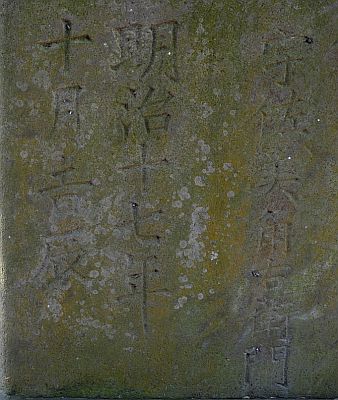 宇佐美角右衛門
明治十七年
十月吉辰